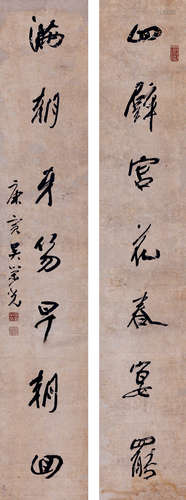 四壁宮花春宴罷
滿朝牙笏早朝回
吳榮光